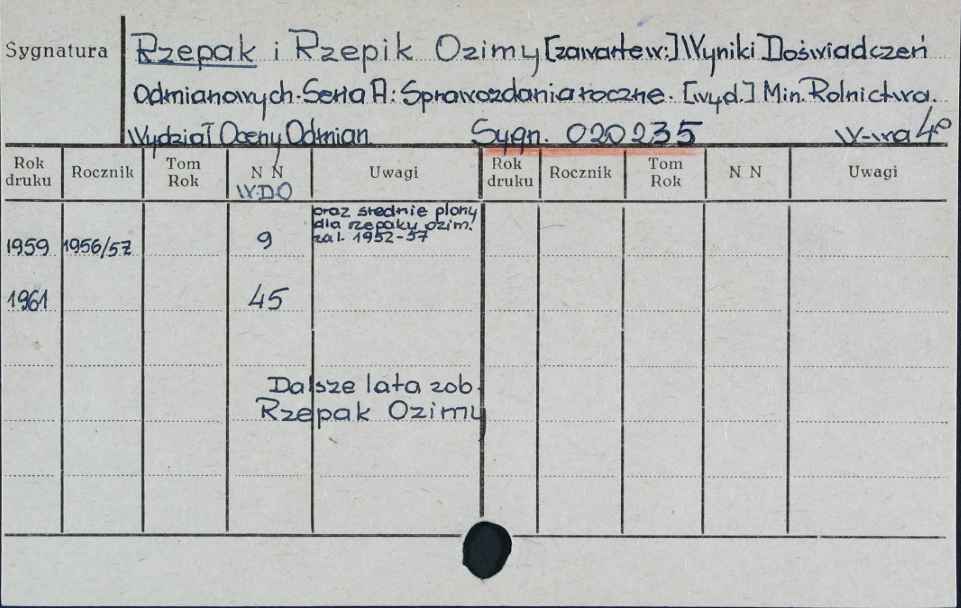 Sygnatura
Rzepak i Rzepik Ozimy [zawarte w:] Wyniki Doświadczeń
Odmianowych. Seria A: Sprawozdania roczne. [wyd.] Min. Rolnictwa.
Wydział Oceny Odmian. Sygn. 020235 W-wa 4°
Rok druku Rocznik Tom Rok N N Uwagi Rok druku Rocznik Tom Rok N N Uwagi
W.D.O
1959 1956/57 9 oraz średnie plony
dla rzepaku ozim.
za l. 1952-57
1961 45
Dalsze lata zob.
Rzepak Ozimy